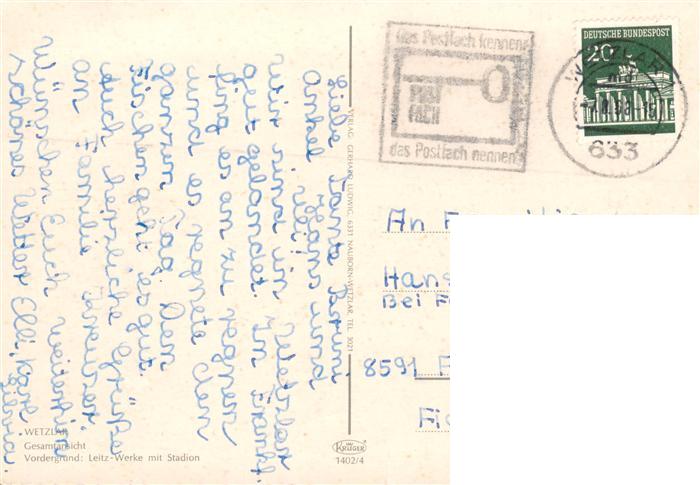 Liebe Tante
Onkel Hans und
Uli!
Wir sind in Wetzlar
gut gelandet. In Frankf.
fing es an zu regnen
und es regnete den
ganzen Tag. Den
Fischen geht es gut.
Euch herzliche Grüße
an Familie
Wünschen Euch weiterhin
schönes Wetter Elli, Karl
Silvia.
das Postfach kennen
POST
FACH
das Postfach nennen
DEUTSCHE BUNDESPOST
20
WETZLAR
633
An
Hans
Bei
8591
VERLAG GERHARD LUDWIG, 6331 NAUBORN-WETZLAR, TEL. 3021
WETZLAR
Gesamtansicht
Vordergrund: Leitz-Werke mit Stadion
KRÜGER
1402/4